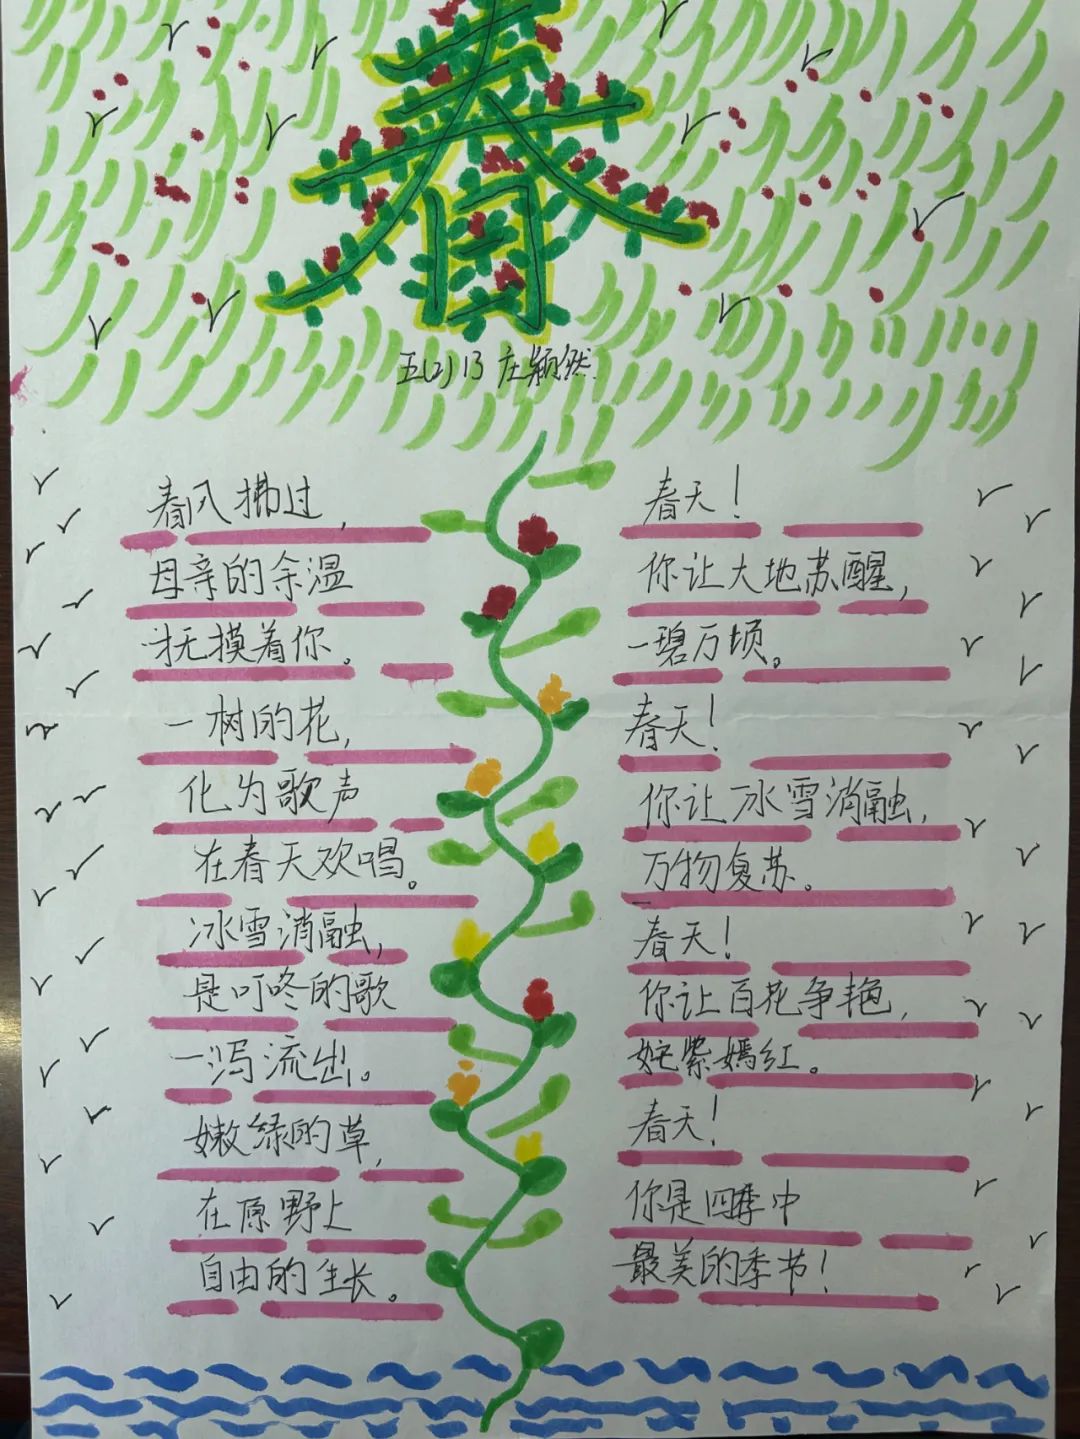 春
五(2)13 庄颖然
春风拂过，
母亲的余温
抚摸着你。
一树的花，
化为歌声
在春天欢唱。
冰雪消融，
是叮咚的歌
一泻流出。
嫩绿的草，
在原野上
自由的生长。
春天！
你让大地苏醒，
一碧万顷。
春天！
你让冰雪消融，
万物复苏。
春天！
你让百花争艳，
姹紫嫣红。
春天！
你是四季中
最美的季节！